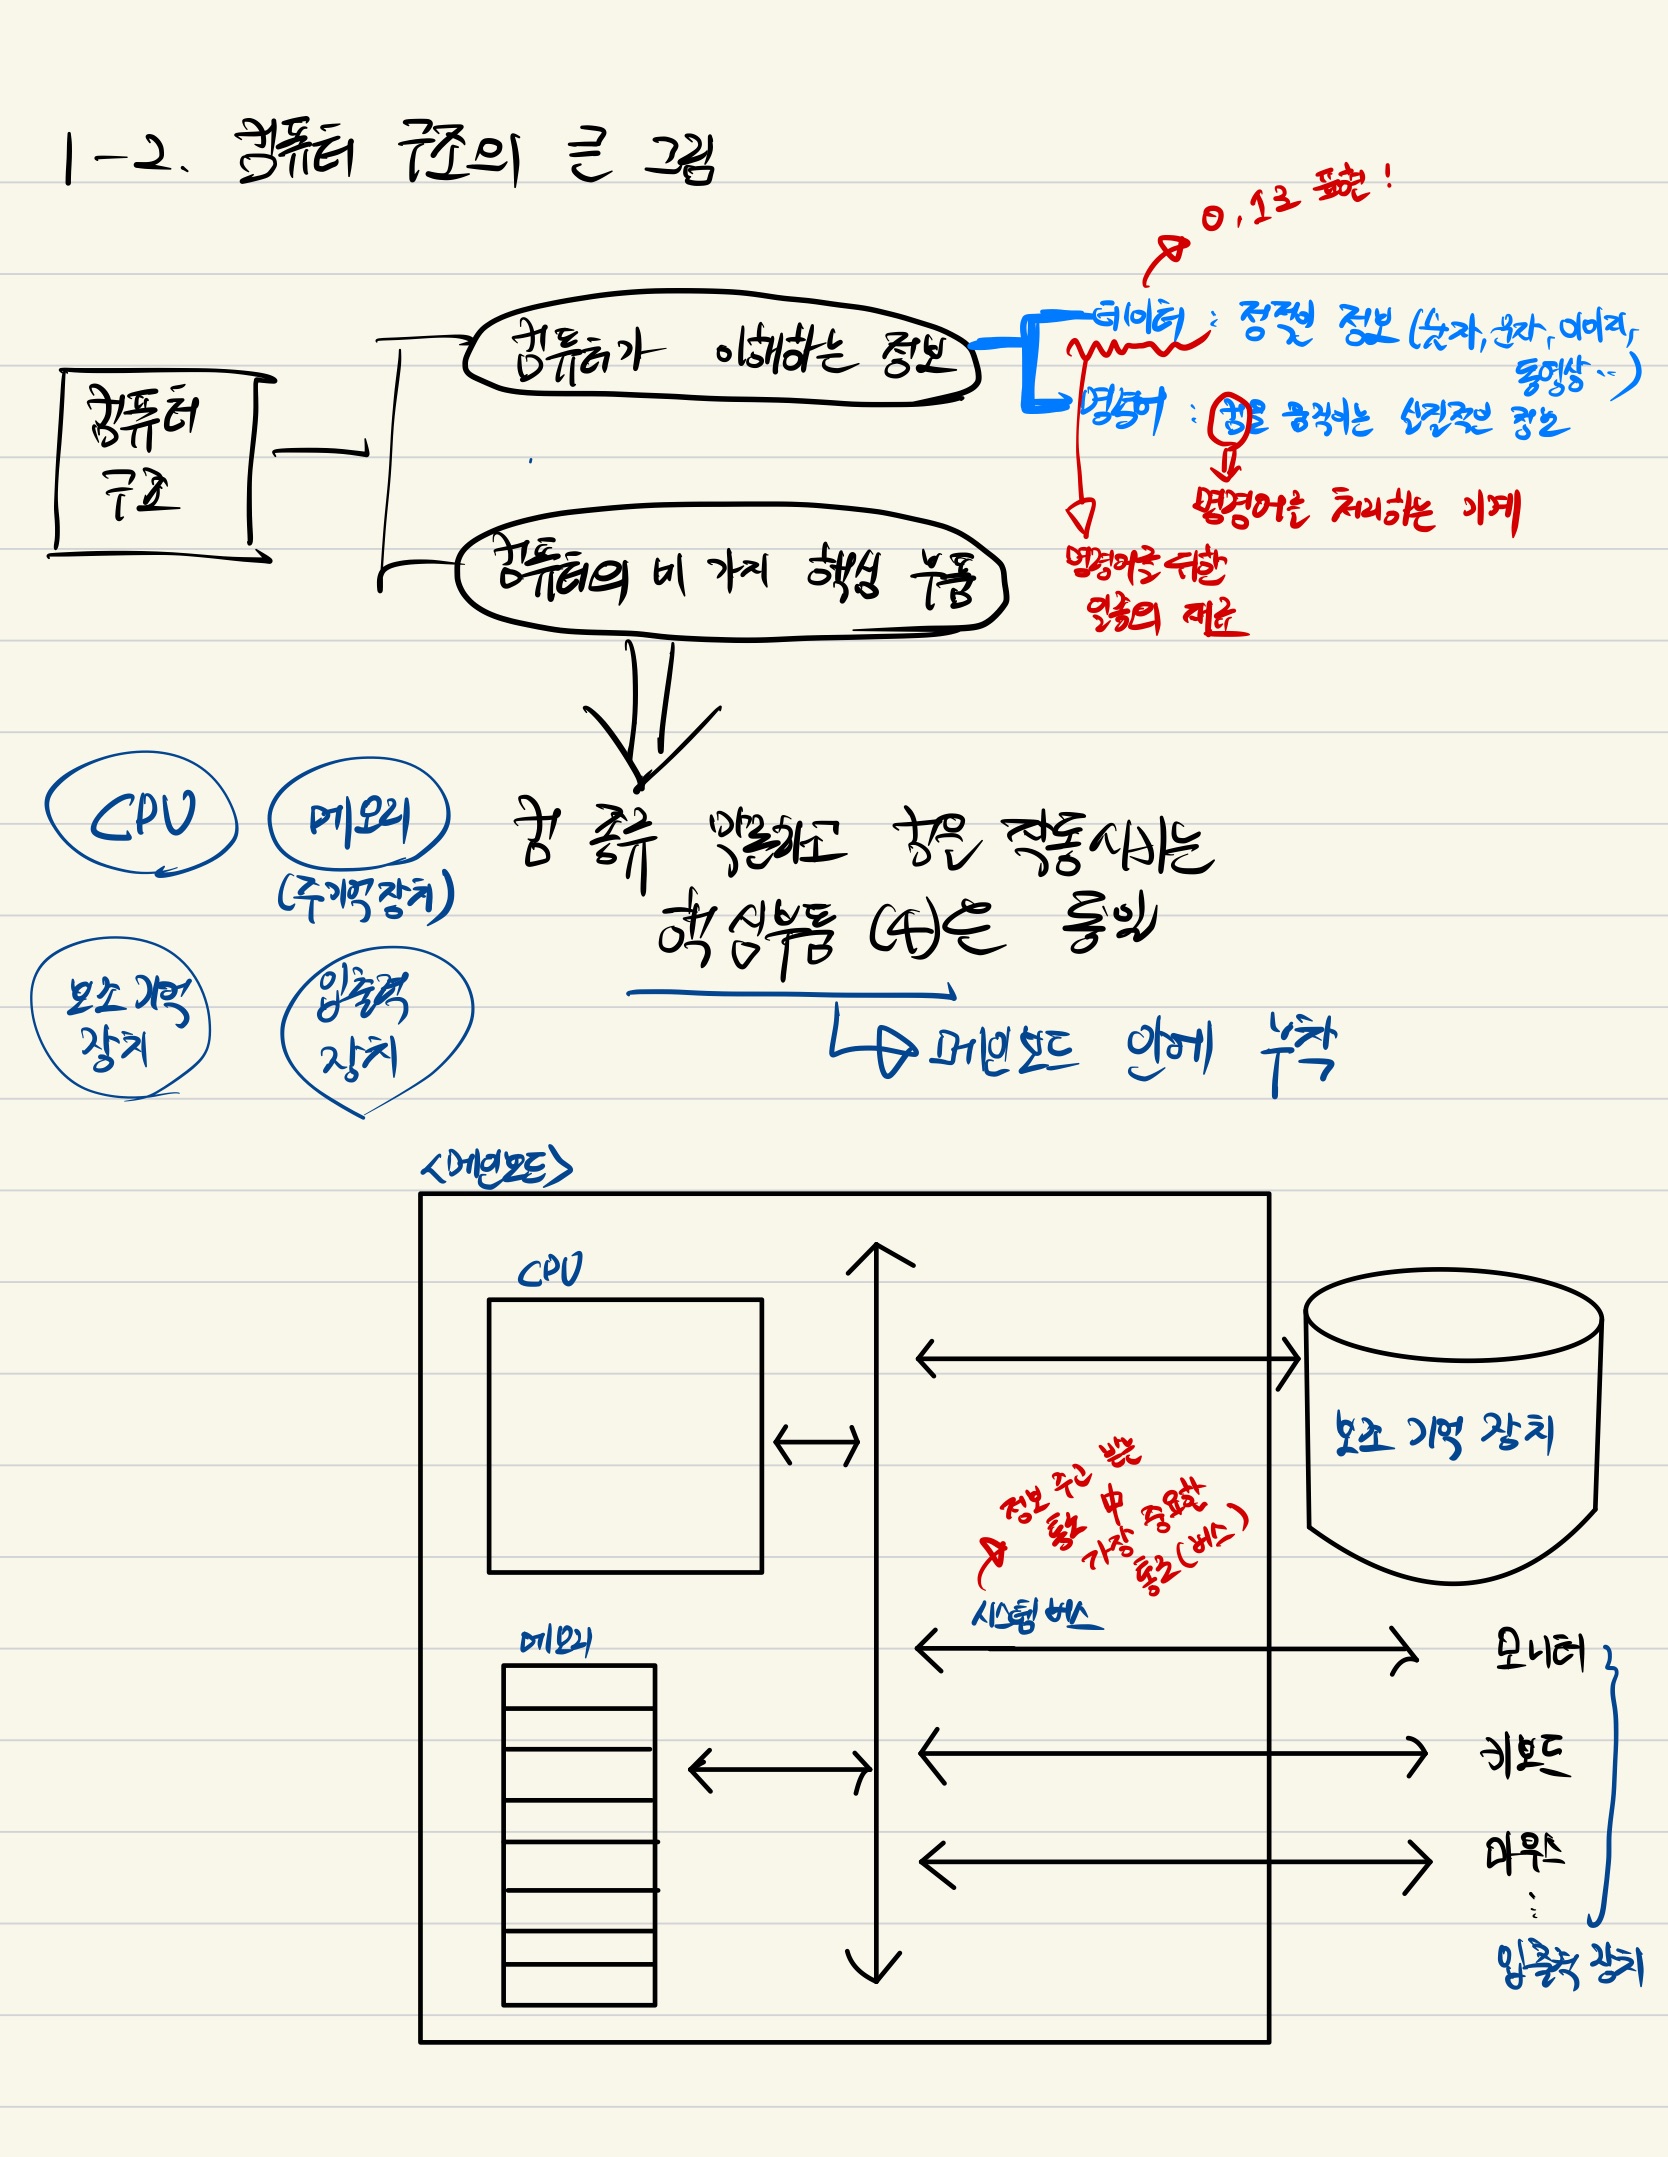 1-2. 컴퓨터 구조의 큰 그림
0, 1로 표현!
컴퓨터
구조
컴퓨터가 이해하는 정보
데이터 : 정적인 정보 (숫자, 문자, 이미지,
동영상…)
명령어 : 컴을 움직이는 실질적인 정보
명령어를 처리하는 기계
명령어를 위한
일종의 재료
컴퓨터의 네 가지 핵심 부품
CPU
메모리
(주기억장치)
보조기억
장치
입출력
장치
컴 종류 막론하고 컴을 작동시키는
핵심부품 (4)은 동일
메인보드 안에 부착
<메인보드>
CPU
보조 기억 장치
정보 주고 받는
통로 中
가장 중요한
통로(버스)
시스템 버스
메모리
모니터
키보드
마우스
⋮
입출력 장치